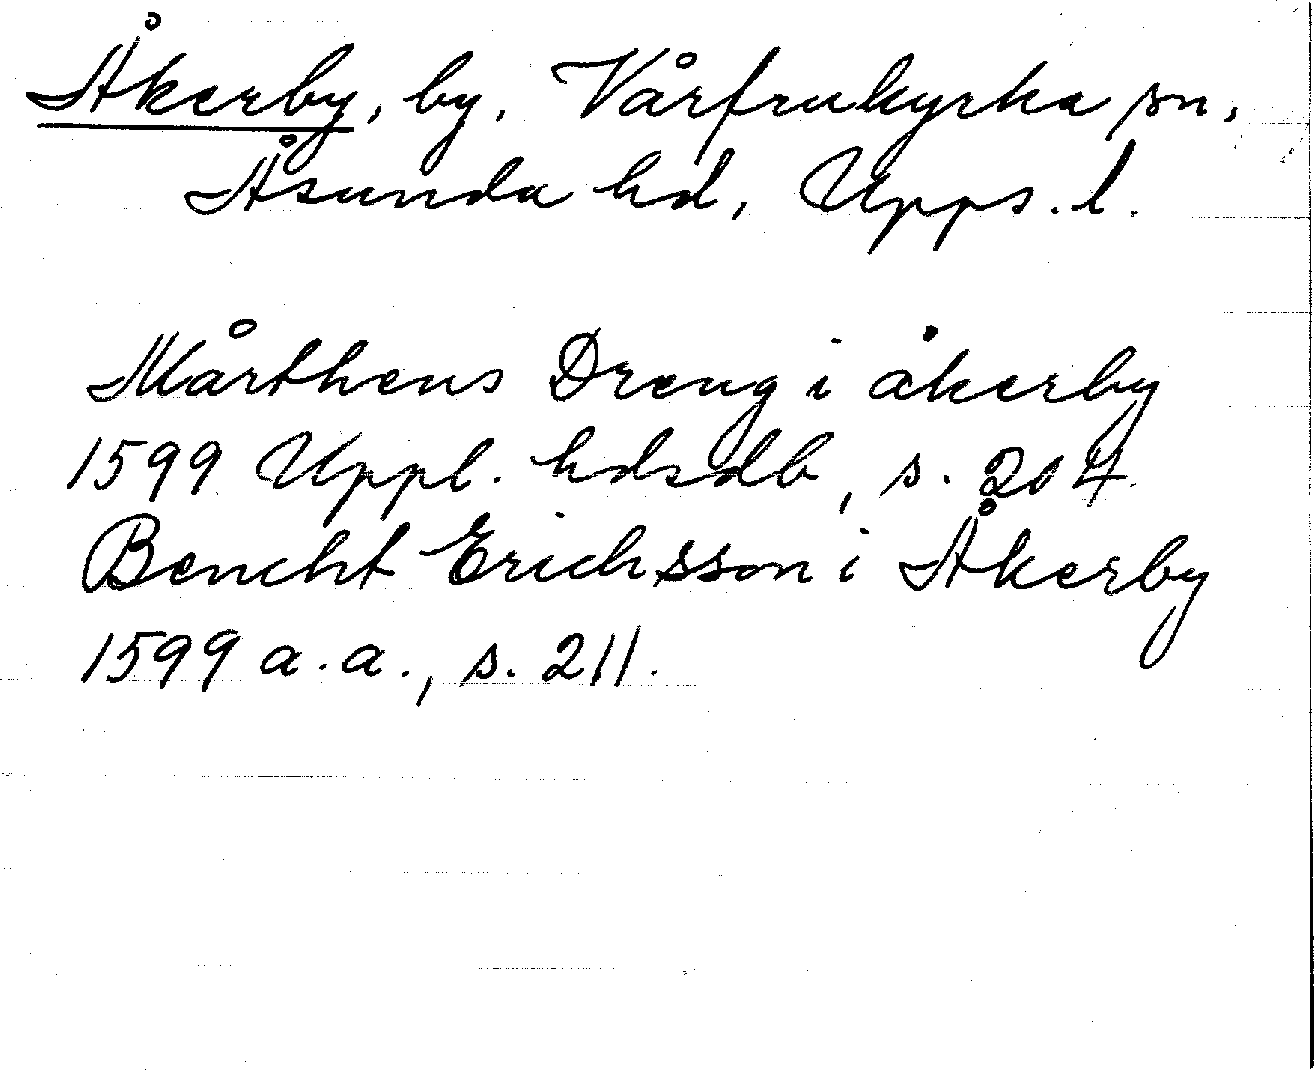 Åkerby, by, Vårfrukyrka sn,
Åsunda hd, Upps. l.
Mårthens Dreng i åkerby
1599 Uppl. hdsdb, s. 204.
Bencht Erichsson i Åkerby
1599 a.a., s. 211.